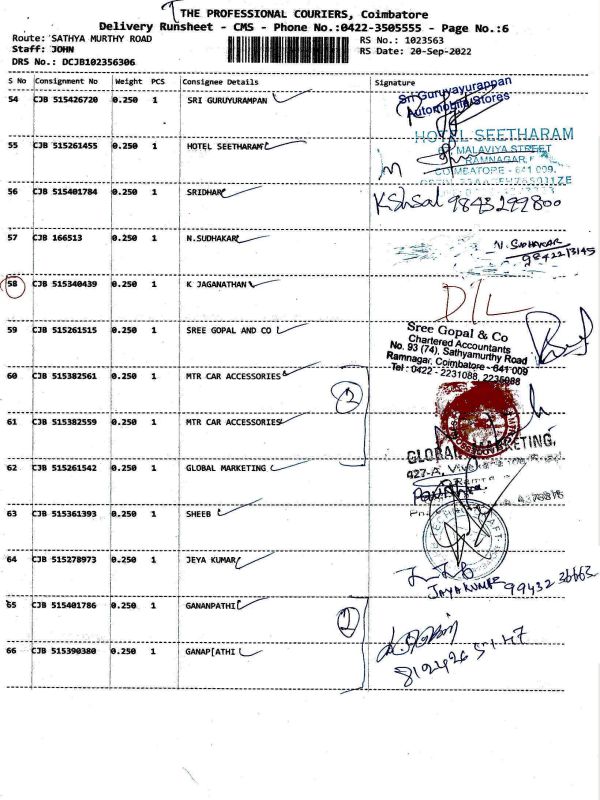 THE PROFESSIONAL COURIERS, Coimbatore
Delivery Runsheet - CMS - Phone No.:0422-3505555 - Page No.:6
Route: SATHYA MURTHY ROAD
Staff: JOHN
DRS No.: DCJB102356306
RS No.: 1023563
RS Date: 20-Sep-2022
S No Consignment No Weight PCS Consignee Details Signature
54 CJB 515426720 0.250 1 SRI GURUYURAMPAN
Sri Guruvayurappan
Automobile Stores
55 CJB 515261455 0.250 1 HOTEL SEETHARAM
HOTEL SEETHARAM
MALAVIYA STREET
RAMNAGAR,
COIMBATORE - 641 009.
56 CJB 515401784 0.250 1 SRIDHAR
9843299800
57 CJB 166513 0.250 1 N.SUDHAKAR
N. SUDHAKAR
58 CJB 515340439 0.250 1 K JAGANATHAN
D/L
59 CJB 515261515 0.250 1 SREE GOPAL AND CO
Sree Gopal & Co
Chartered Accountants
No. 93 (74), Sathyamurthy Road
Ramnagar, Coimbatore - 641 009
Tel : 0422 - 2231088, 2235088
60 CJB 515382561 0.250 1 MTR CAR ACCESSORIES
2
61 CJB 515382559 0.250 1 MTR CAR ACCESSORIES
62 CJB 515261542 0.250 1 GLOBAL MARKETING
GLOBAL MARKETING,
427-A,
63 CJB 515361393 0.250 1 SHEEB
64 CJB 515278973 0.250 1 JEYA KUMAR
JAYAKUMAR 99432 36663
65 CJB 515401786 0.250 1 GANANPATHI
2
66 CJB 515390380 0.250 1 GANAP[ATHI